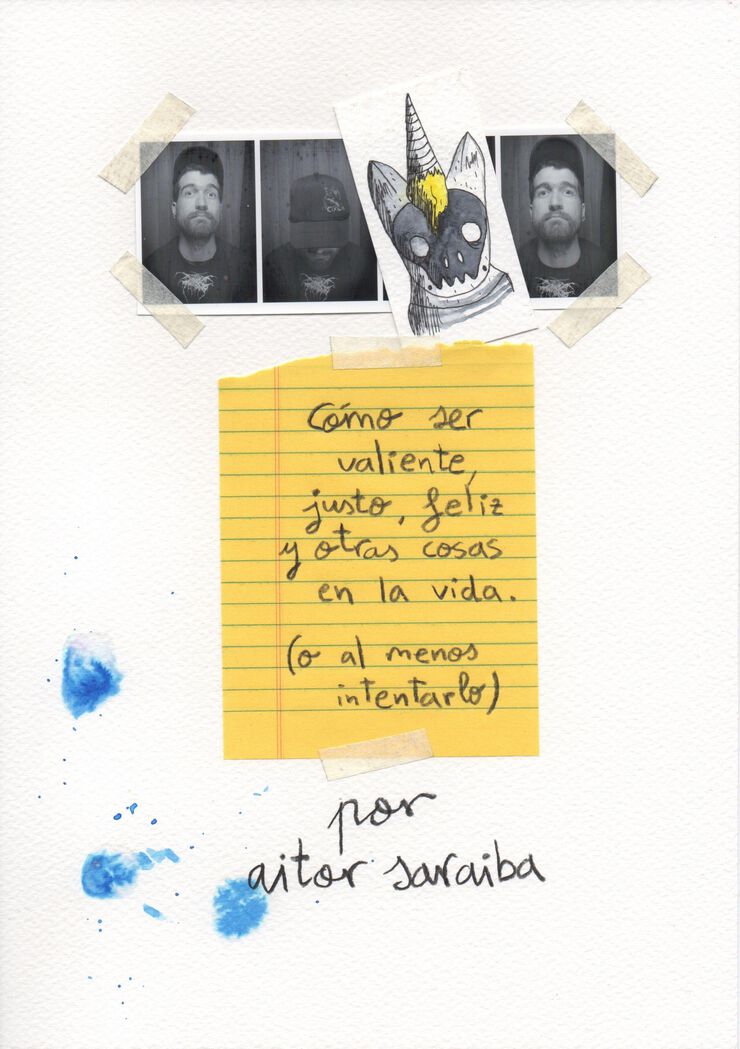 Cómo ser
valiente,
justo, feliz
y otras cosas
en la vida.
(o al menos
intentarlo)
por
aitor saraiba